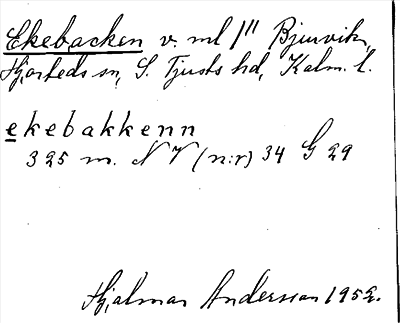 Ekebacken v. ml 1" Bjurvik,
Hjorteds sn, S. Tjusts hd, Kalm. l.
ekebakkenn
325 m. N V (n:r) 34 G 29
Hjalmar Andersson 1952.